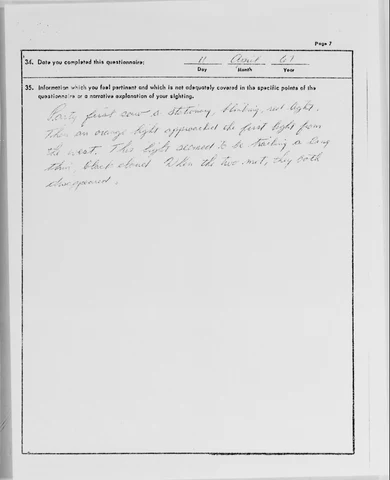 Page 7
34. Date you completed this questionnaire: 11 August 67
Day Month Year
35. Information which you feel pertinent and which is not adequately covered in the specific points of the
questionnaire or a narrative explanation of your sighting.
Party first saw a stationary, blinking, red light.
Then an orange light approached the first light from
the west. This light seemed to be trailing a long
thin, black cloud. When the two met, they both
disappeared.